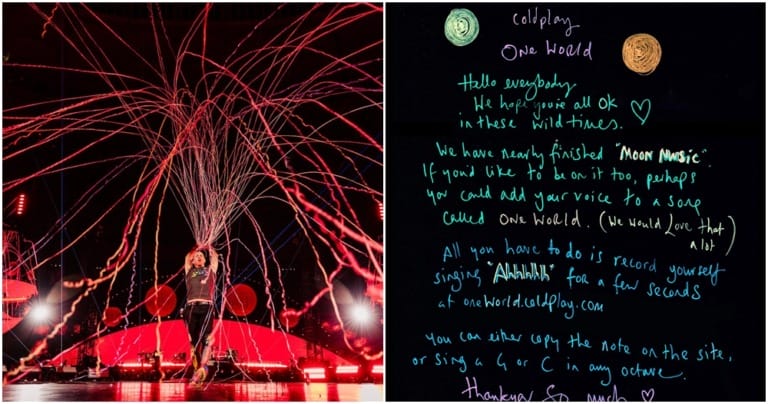 coldplay
One World
Hello everybody
We hope you're all OK
in these wild times.
We have nearly finished "Moon Music".
If you'd like to be on it too, perhaps
you could add your voice to a song
called One World. (We would Love that
a lot)
All you have to do is record yourself
singing "Ahhhhh" for a few seconds
at oneworld.coldplay.com
you can either copy the note on the site,
or sing a G or C in any octave.
thankyou So much